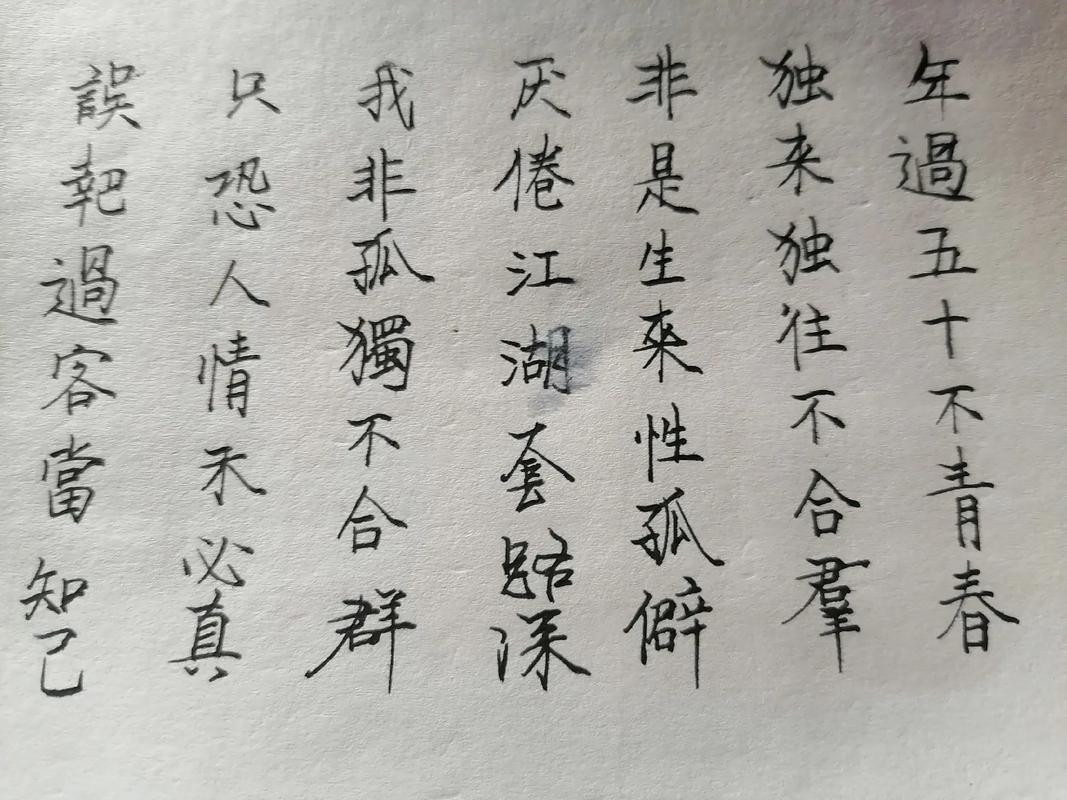 年過五十不青春
独来独往不合羣
非是生來性孤僻
厌倦江湖套路深
我非孤獨不合群
只恐人情未必真
誤把過客當知己